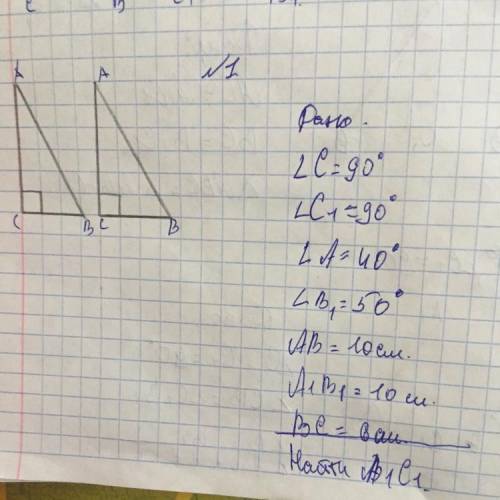 №1
A A
C B C B
Дано.
∠C=90°
∠C1=90°
∠A=40°
∠B1=50°
AB=10см.
A1B1=10см.
BC=8см.
Найти B1C1.